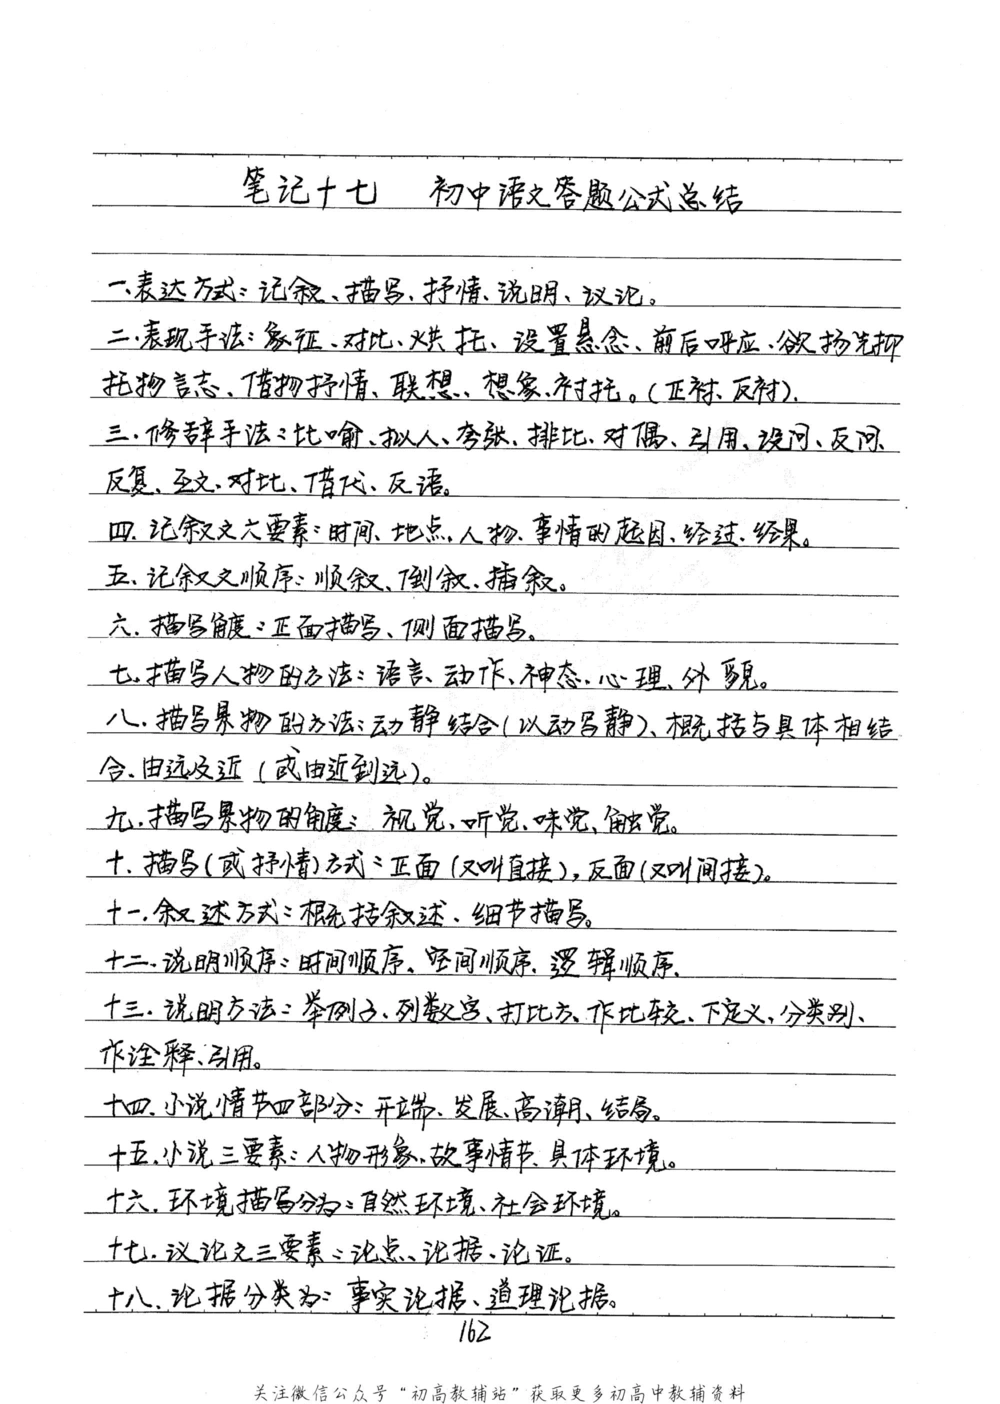 笔记十七 初中语文答题公式总结
一、表达方式：记叙、描写、抒情、说明、议论。
二、表现手法：象征、对比、烘托、设置悬念、前后呼应、欲扬先抑
托物言志、借物抒情、联想、想象、衬托。(正衬、反衬).
三、修辞手法：比喻、拟人、夸张、排比、对偶、引用、设问、反问、
反复、互文、对比、借代、反语。
四、记叙文六要素：时间、地点、人物、事情的起因、经过、经果。
五、记叙文顺序：顺叙、倒叙、插叙。
六、描写角度：正面描写、侧面描写。
七、描写人物的方法：语言、动作、神态、心理、外貌。
八、描写景物的方法：动静结合(以动写静)、概括与具体相结
合、由远及近(或由近到远)。
九、描写景物的角度：视觉、听觉、味觉、触觉。
十、描写(或抒情)方式：正面(又叫直接)，反面(又叫间接)。
十一、叙述方式：概括叙述、细节描写。
十二、说明顺序：时间顺序、空间顺序、逻辑顺序.
十三、说明方法：举例子、列数字、打比方、作比较、下定义、分类别、
作诠释、引用。
十四、小说情节四部分：开端、发展、高潮、结局。
十五、小说三要素：人物形象、故事情节、具体环境。
十六、环境描写分为：自然环境、社会环境。
十七、议论文三要素：论点、论据、论证。
十八、论据分类为：事实论据、道理论据。
162
关注微信公众号“初高教辅站”获取更多初高中教辅资料